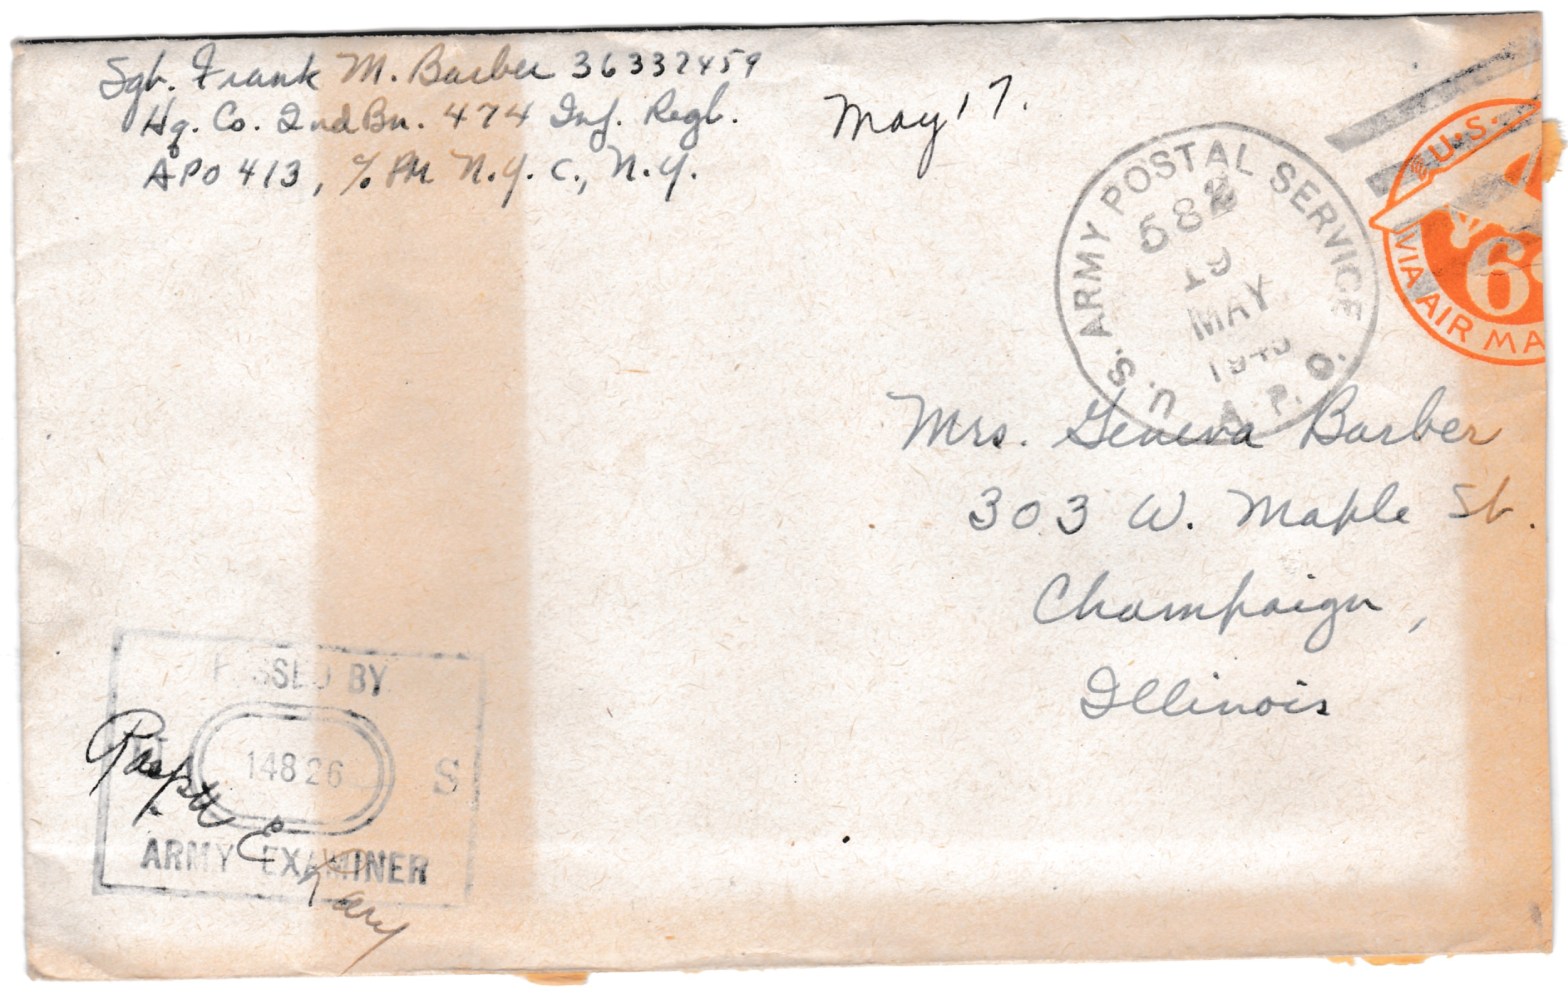 Sgt. Frank M. Barber 36337459
Hq. Co. 2nd Bn. 474 Inf. Regt.
APO 413, % PM N.Y.C., N.Y.
May 17.
U.S. ARMY POSTAL SERVICE
582
19
MAY
1945
A.P.O.
U.S.
6¢
VIA AIR MA
Mrs. Geneva Barber
303 W. Maple St.
Champaign,
Illinois
PASSED BY
U S
14826
ARMY EXAMINER